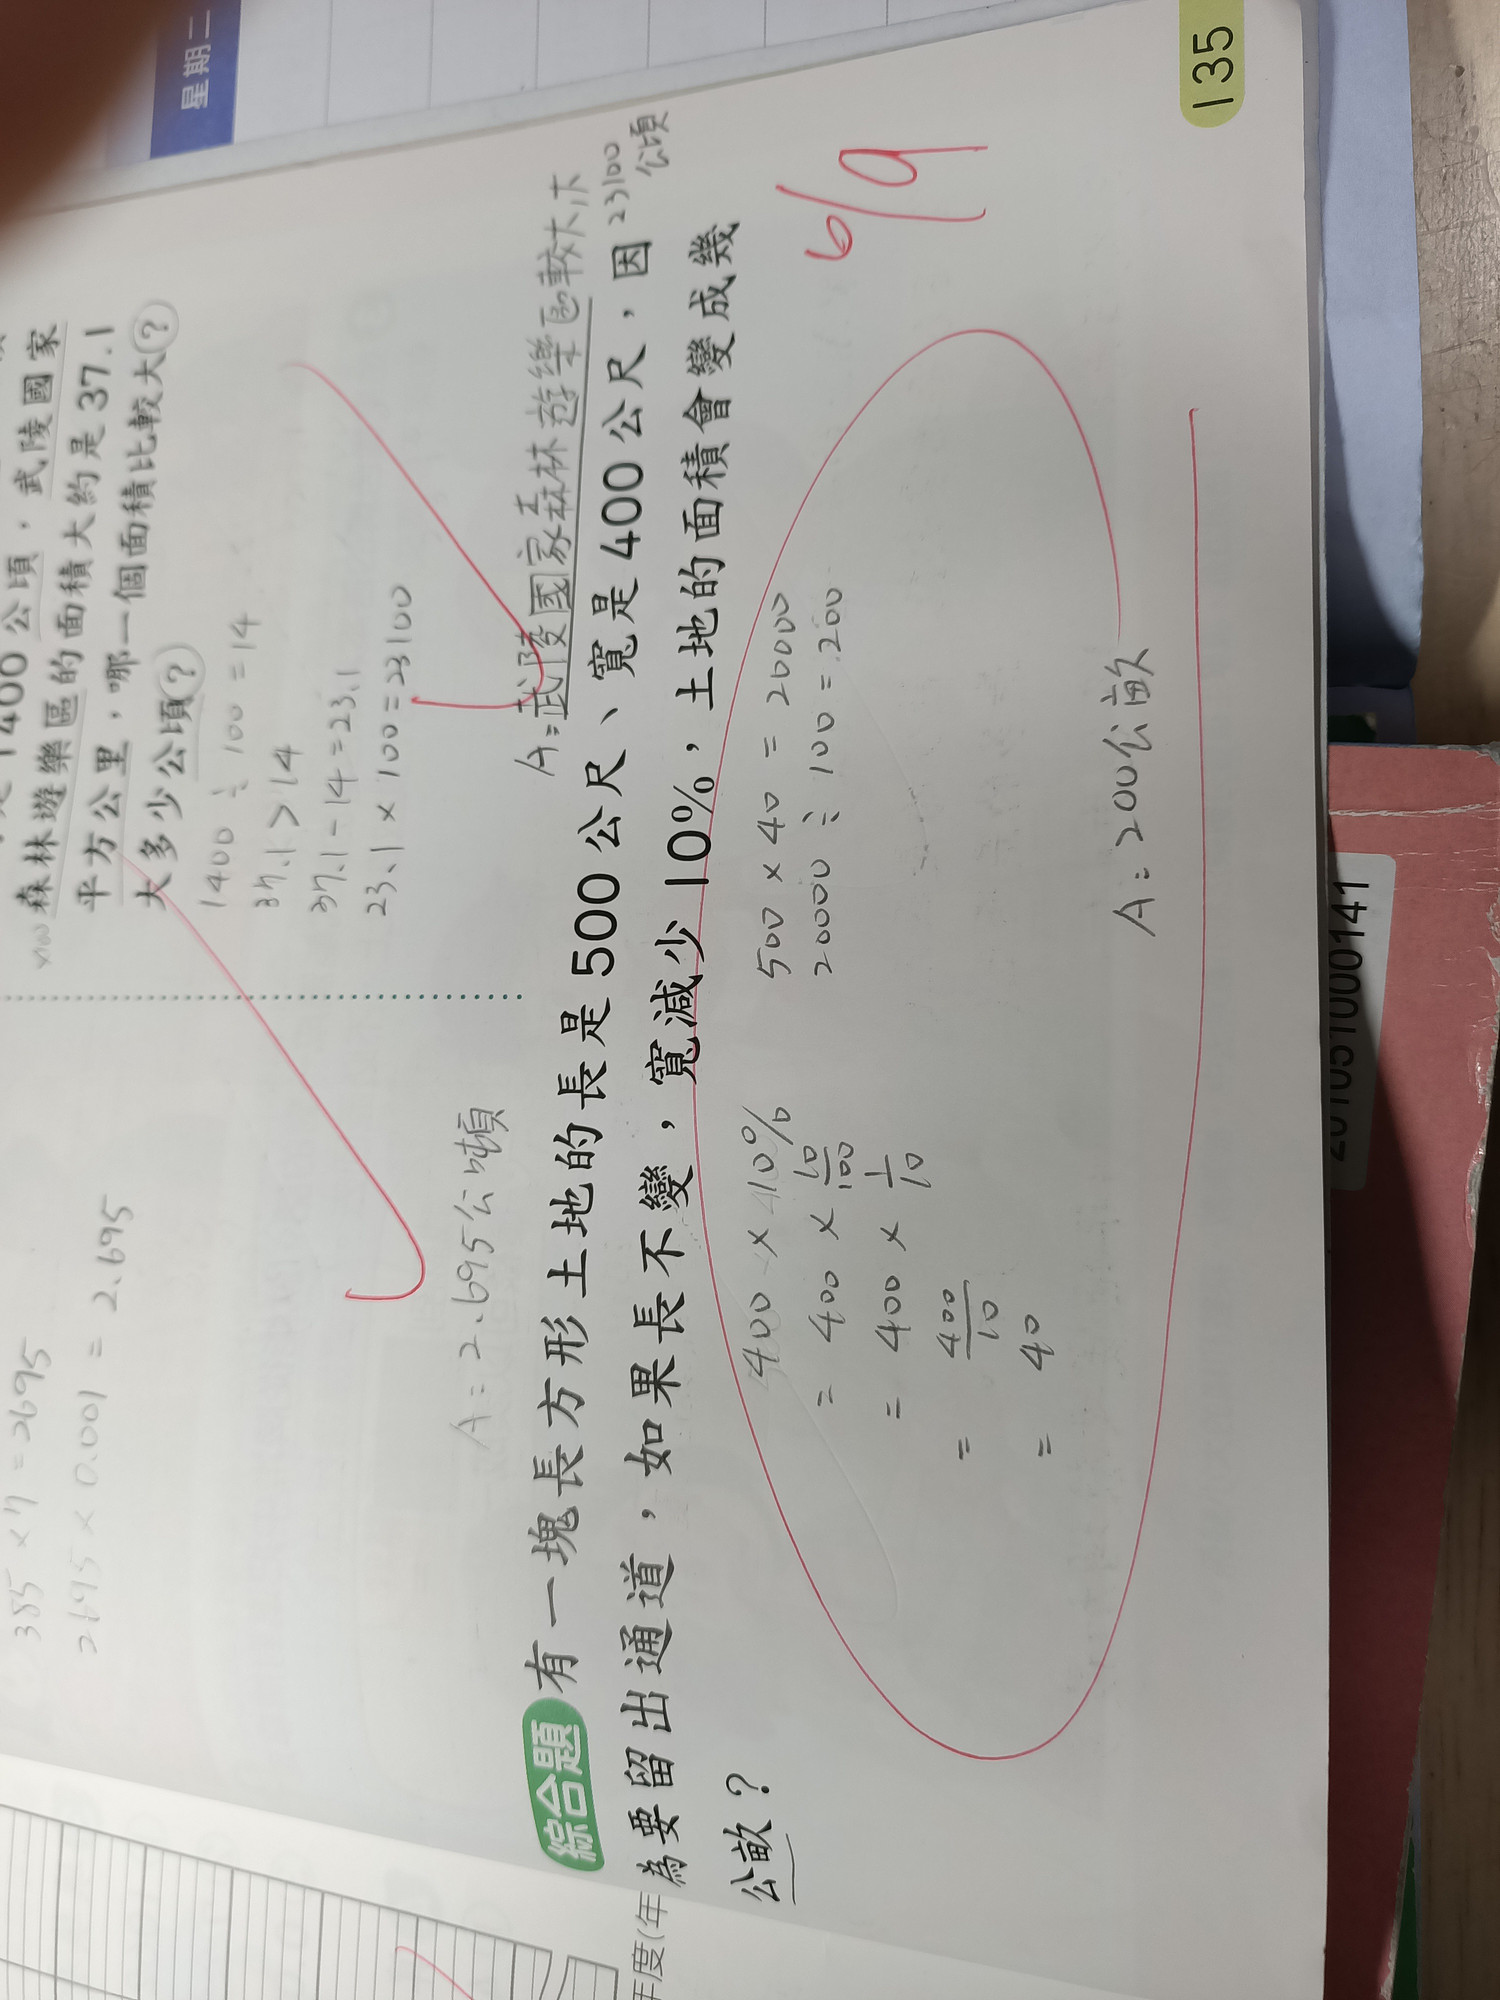 星期二
1400公頃，武陵國家
森林遊樂區的面積大約是37.1
平方公里，哪一個面積比較大？
大多少公頃？
1400 ÷ 100 = 14
37.1 > 14
37.1 - 14 = 23.1
23.1 × 100 = 23100
A：武陵國家森林遊樂區較大，大
23100
公頃
385 × 7 = 2695
2695 × 0.001 = 2.695
A：2.695公噸
綜合題 有一塊長方形土地的長是500公尺、寬是400公尺，因
為要留出通道，如果長不變，寬減少10%，土地的面積會變成幾
公畝？
400 × 10%
= 400 × 10/100
= 400 × 1/10
= 400/10
= 40
500 × 40 = 20000
20000 ÷ 100 = 200
A：200公畝
6/9
135
年度(年
201051000141